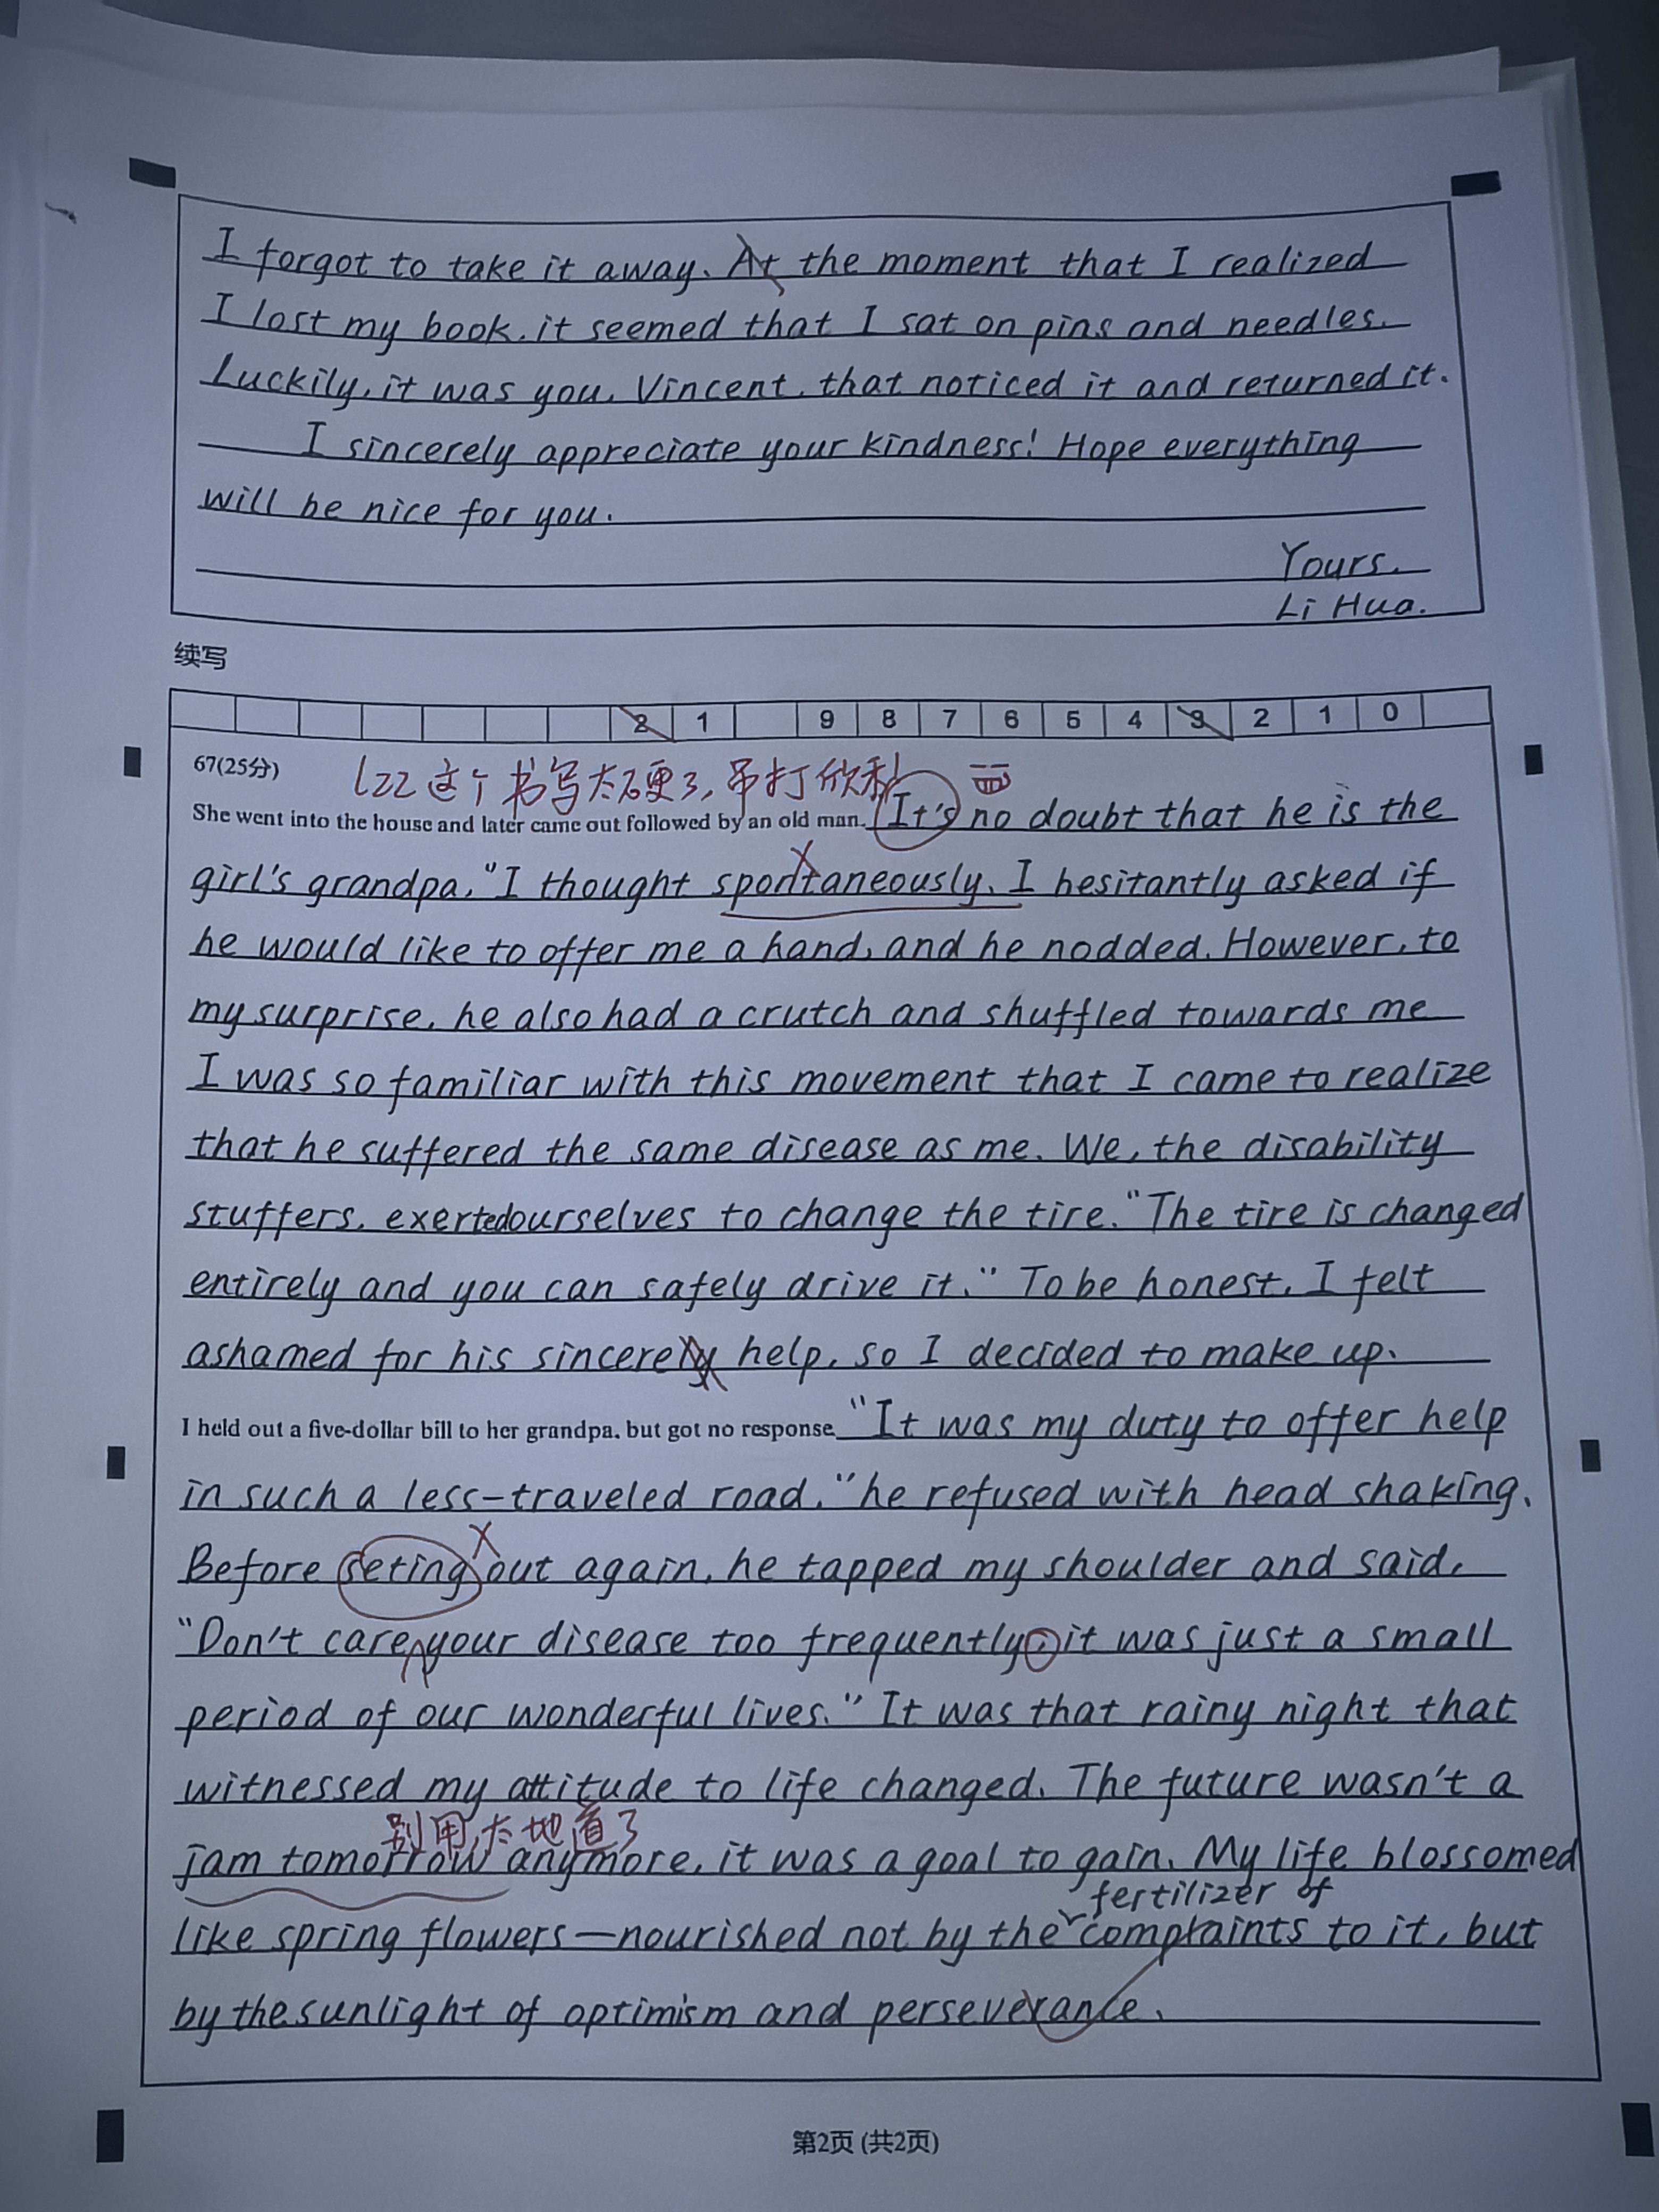 I forgot to take it away. At the moment that I realized
I lost my book, it seemed that I sat on pins and needles.
Luckily, it was you, Vincent, that noticed it and returned it.
I sincerely appreciate your kindness! Hope everything
will be nice for you.
Yours,
Li Hua.
续写
2 1 9 8 7 6 5 4 3 2 1 0
67(25分)
这个书写太硬了,吊打欣
She went into the house and later came out followed by an old man. It's no doubt that he is the
girl's grandpa," I thought spontaneously. I hesitantly asked if
he would like to offer me a hand, and he nodded. However, to
my surprise, he also had a crutch and shuffled towards me
I was so familiar with this movement that I came to realize
that he suffered the same disease as me. We, the disability
stuffers, exerted ourselves to change the tire. "The tire is changed
entirely and you can safely drive it." To be honest, I felt
ashamed for his sincere help, so I decided to make up.
I held out a five-dollar bill to her grandpa, but got no response. "It was my duty to offer help
in such a less-traveled road," he refused with head shaking.
Before seting out again, he tapped my shoulder and said,
"Don't care your disease too frequently, it was just a small
period of our wonderful lives." It was that rainy night that
witnessed my attitude to life changed. The future wasn't a
别用,太地道了
jam tomorrow anymore, it was a goal to gain. My life blossomed
fertilizer of
like spring flowers—nourished not by the complaints to it, but
by the sunlight of optimism and perseverance.
第2页 (共2页)